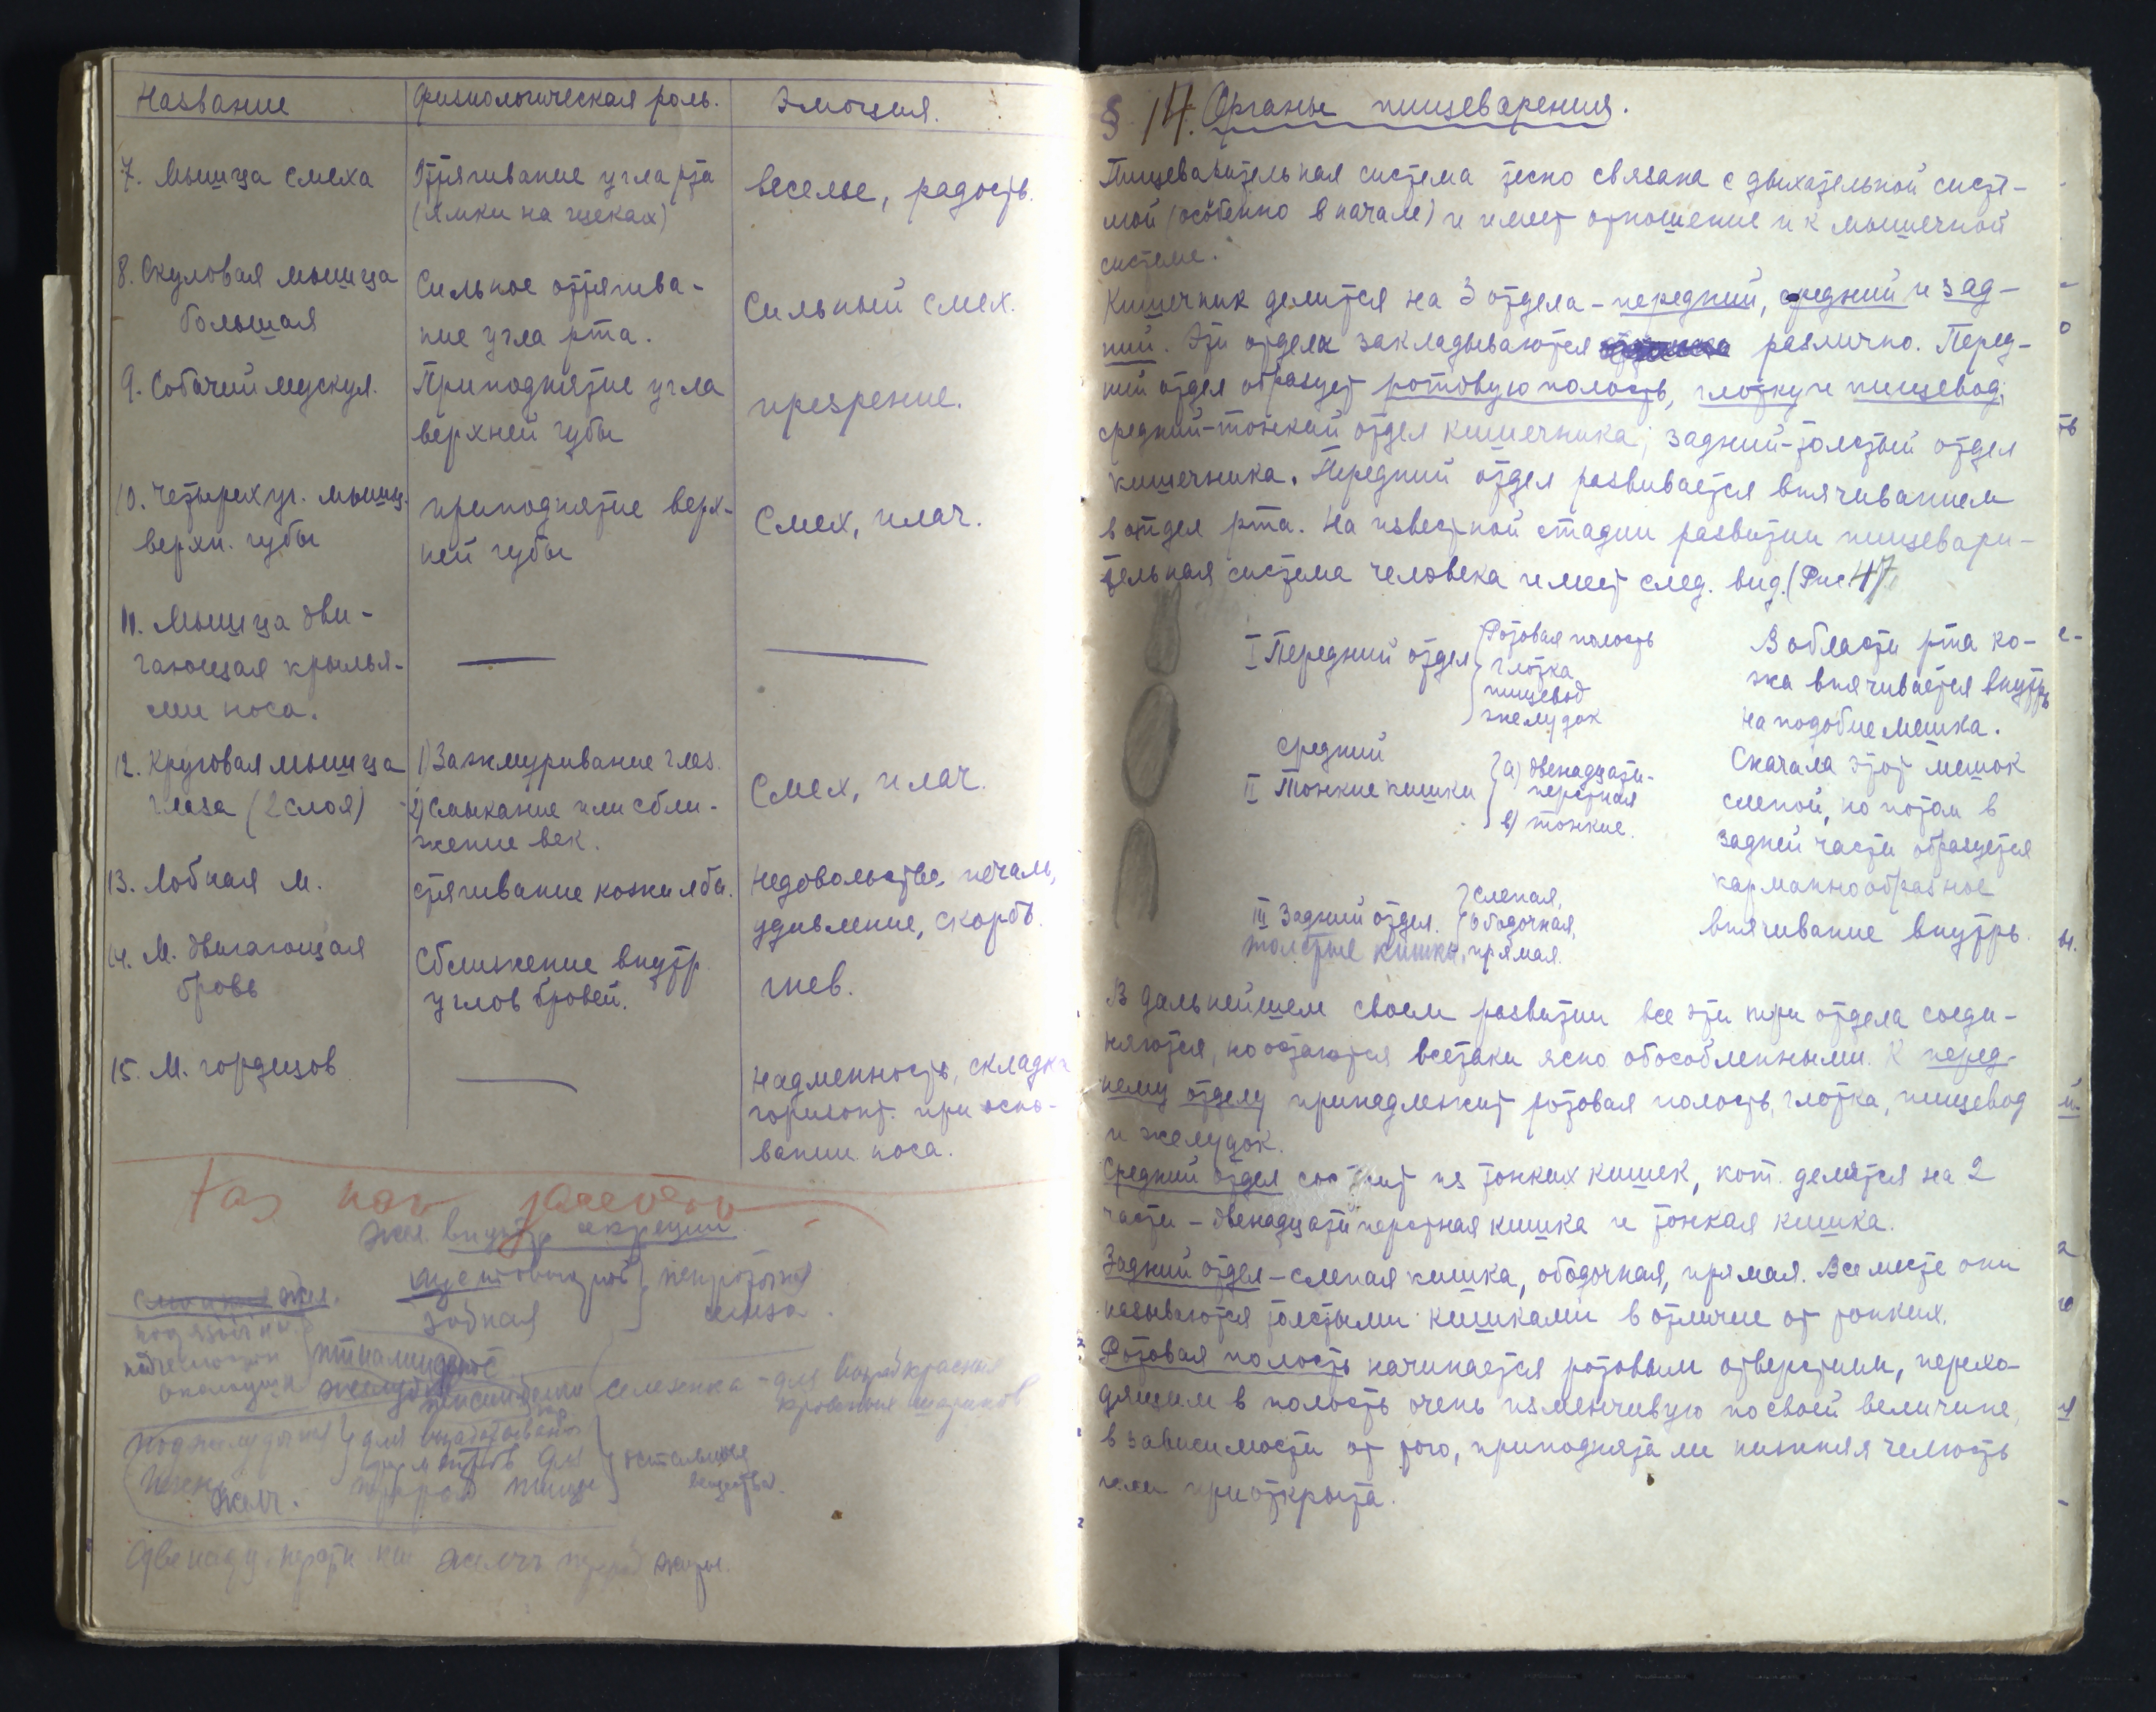 Название Физиологическая роль. Эмоция.
7. Мышца смеха Оттягивание угла рта веселье, радость.
(ямки на щеках)
8. Скуловая мышца Сильное оттягива- Сильный смех.
большая ние угла рта.
9. Собачий мускул. Приподнятие угла презрение.
верхней губы
10. Четырехуг. мышц. приподнятие верх- Смех, плач.
верхн. губы ней губы
11. Мышца дви-
гающая крылья-
ми носа.
12. Круговая мышца 1) Зажмуривание глаз. Смех, плач.
глаза (2 слоя) 2) Смыкание или сбли-
жение век.
13. Лобная м. стягивание кожи лба. Недовольство, печаль,
удивление, скорбь.
14. М. двигающая Сближение внутр. гнев.
бровь углов бровей.
15. М. гордецов Надменность, складки
горизонт. при осно-
вании носа.
жел. внутр. секреции
зобная
желудок
селезенка - для красных
кровяных шариков
поджелудочная для
для
желч. пищи
желчь жиры.
§ 14. Органы пищеварения.
Пищеварительная система тесно связана с дыхательной систе-
мой (особенно в начале) и имеет отношение и к мышечной
системе.
Кишечник делится на 3 отдела - передний, средний и зад-
ний. Эти отделы закладываются различно. Перед-
ний отдел образует ротовую полость, глотку и пищевод;
средний - тонкий отдел кишечника; задний - толстый отдел
кишечника. Передний отдел развивается впячиванием
в отдел рта. На известной стадии развития пищевари-
тельная система человека имеет след. вид. (Рис. 47
I Передний отдел Ротовая полость
глотка
пищевод
желудок
средний
II Тонкие кишки а) двенадцати-
перстная
в) тонкие.
III Задний отдел. слепая,
ободочная,
толстые кишки, прямая.
В области рта ко-
жа впячивается внутрь
на подобие мешка.
Сначала этот мешок
слепой, но потом в
задней части образуется
карманнообразное
впячивание внутрь.
В дальнейшем своем развитии все эти три отдела соеди-
няются, но остаются всетаки ясно обособленными. К перед-
нему отделу принадлежит ротовая полость, глотка, пищевод
и желудок.
Средний отдел состоит из тонких кишек, кот. делятся на 2
части - двенадцатиперстная кишка и тонкая кишка.
Задний отдел - слепая кишка, ободочная, прямая. Все месте они
называются толстыми кишками в отличие от тонких.
Ротовая полость начинается ротовым отверстием, перехо-
дящим в полость очень изменчивую по своей величине,
в зависимости от того, приподнята ли нижняя челюсть
или приоткрыта.